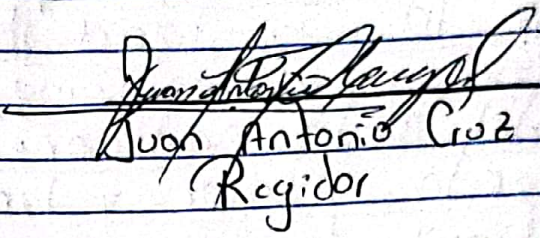 Juan Antonio Cruz
Regidor